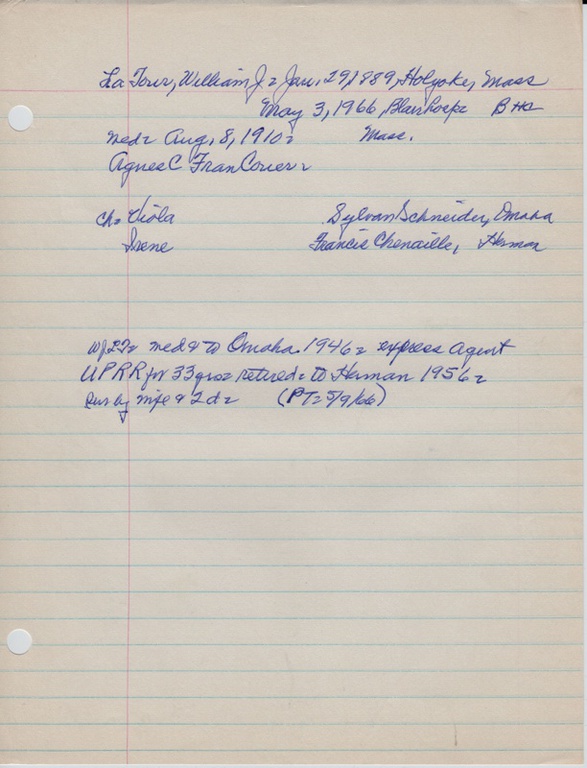 La Tour, William J = Jan. 29, 1889, Holyoke, Mass
May 3, 1966, Blair hospc B Hs
med = Aug. 8, 1910 = Mass.
Agnes C Fran Couer =
Ch = Viola Sylvan Schneider, Omaha
Irene Francis Chenaille, Herman
med & to Omaha 1946 = express agent
UPRR for 33 yrs = retired = to Herman 1956 =
Surv by wife & 2 d = (PT = 5/9/66)